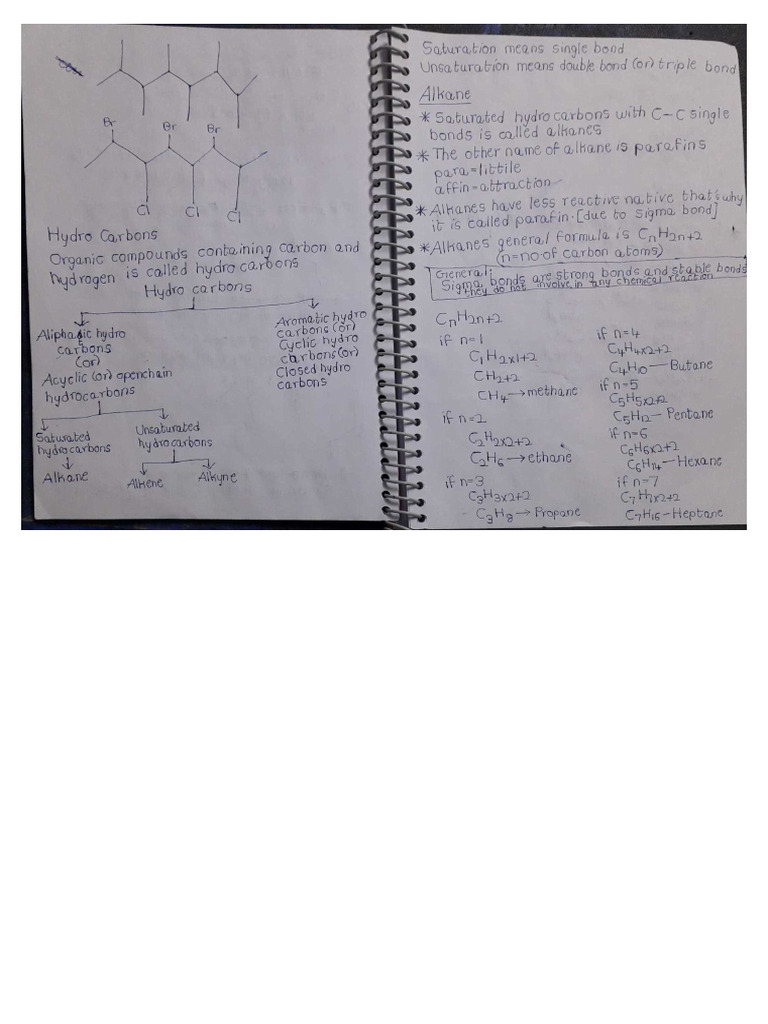 Br Br Br
Cl Cl Cl
Hydro Carbons
Organic compounds containing carbon and
hydrogen is called hydro carbons
Hydro carbons
Aliphatic hydro
carbons
(or)
Acyclic (or) openchain
hydrocarbons
Aromatic hydro
carbons (or)
Cyclic hydro
carbons (or)
Closed hydro
carbons
Saturated
hydrocarbons
Unsaturated
hydrocarbons
Alkane
Alkene
Alkyne
Saturation means single bond
Unsaturation means double bond (or) triple bond
Alkane
* Saturated hydro carbons with C-C single
bonds is called alkanes
* The other name of alkane is parafins
para = littile
affin = attraction
* Alkanes have less reactive native that's why
it is called parafin. [due to sigma bond]
* Alkanes general formula is CnH2n+2
(n=no.of carbon atoms)
General:
Sigma bonds are strong bonds and stable bonds
they do not involve in any chemical reaction
CnH2n+2
if n=1
C1H2x1+2
CH2+2
CH4 → methane
if n=2
C2H2x2+2
C2H6 → ethane
if n=3
C3H3x2+2
C3H8 → Propane
if n=4
C4H4x2+2
C4H10 — Butane
if n=5
C5H5x2+2
C5H12 - Pentane
if n=6
C6H6x2+2
C6H14 — Hexane
if n=7
C7H7x2+2
C7H16 - Heptane